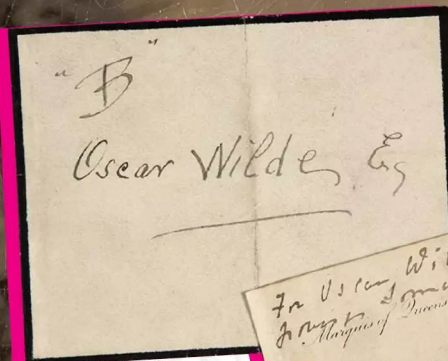 "B"
Oscar Wilde, Esq
For Oscar Wi
Marquis of Queens